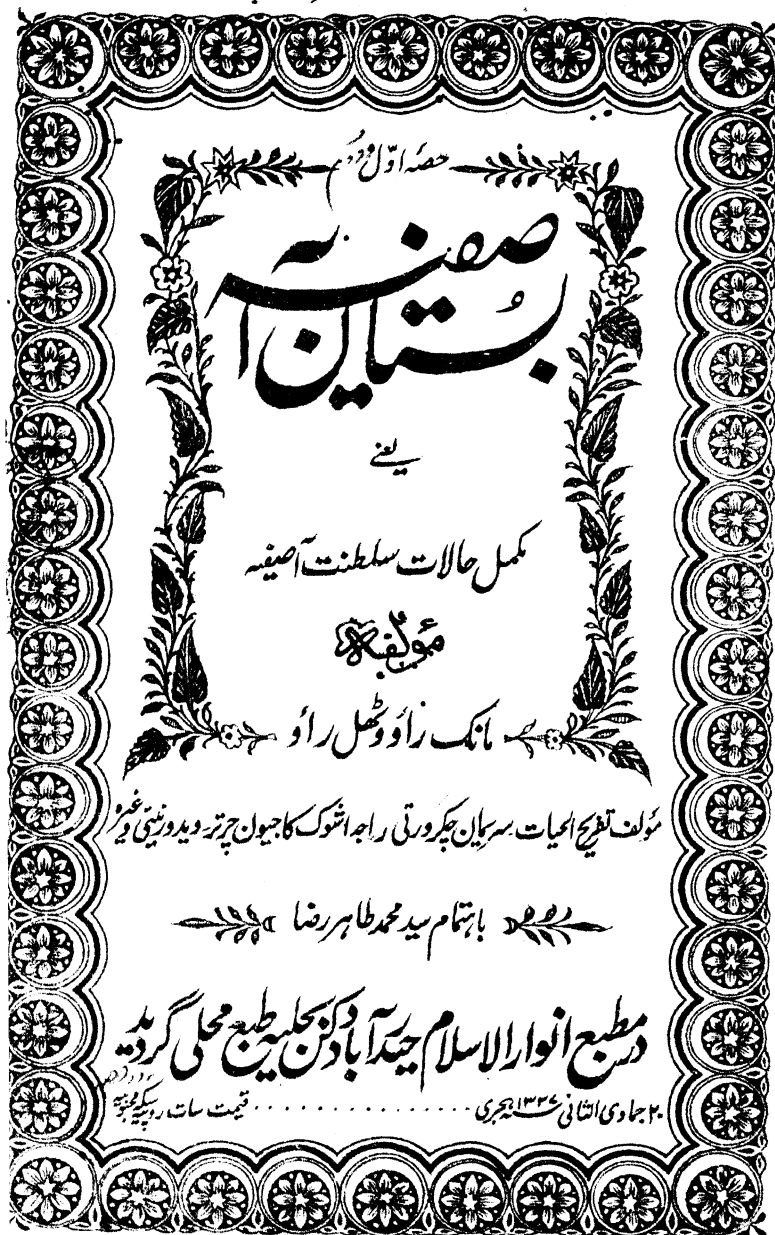 حصۂ اوّل و دوم
بُستانِ آصفیہ
یعنے
مکمل حالات سلطنت آصفیہ
مؤلفہ
مانک راؤ وٹھل راؤ
مؤلف تفریح الحیات سریمان چکرورتی راجہ اشوک کا جیون چرتر ویدور نیتی وغیرہ
باہتمام سید محمد طاہر رضا
در مطبع انوار الاسلام حیدرآباد دکن بحلیہ طبع محلی گردید
۲۰ جمادی الثانی ۱۳۲۷؁ ہجری . . . . . . . . . . . . . . قیمت سات روپیہ سکہ محبوبیہ